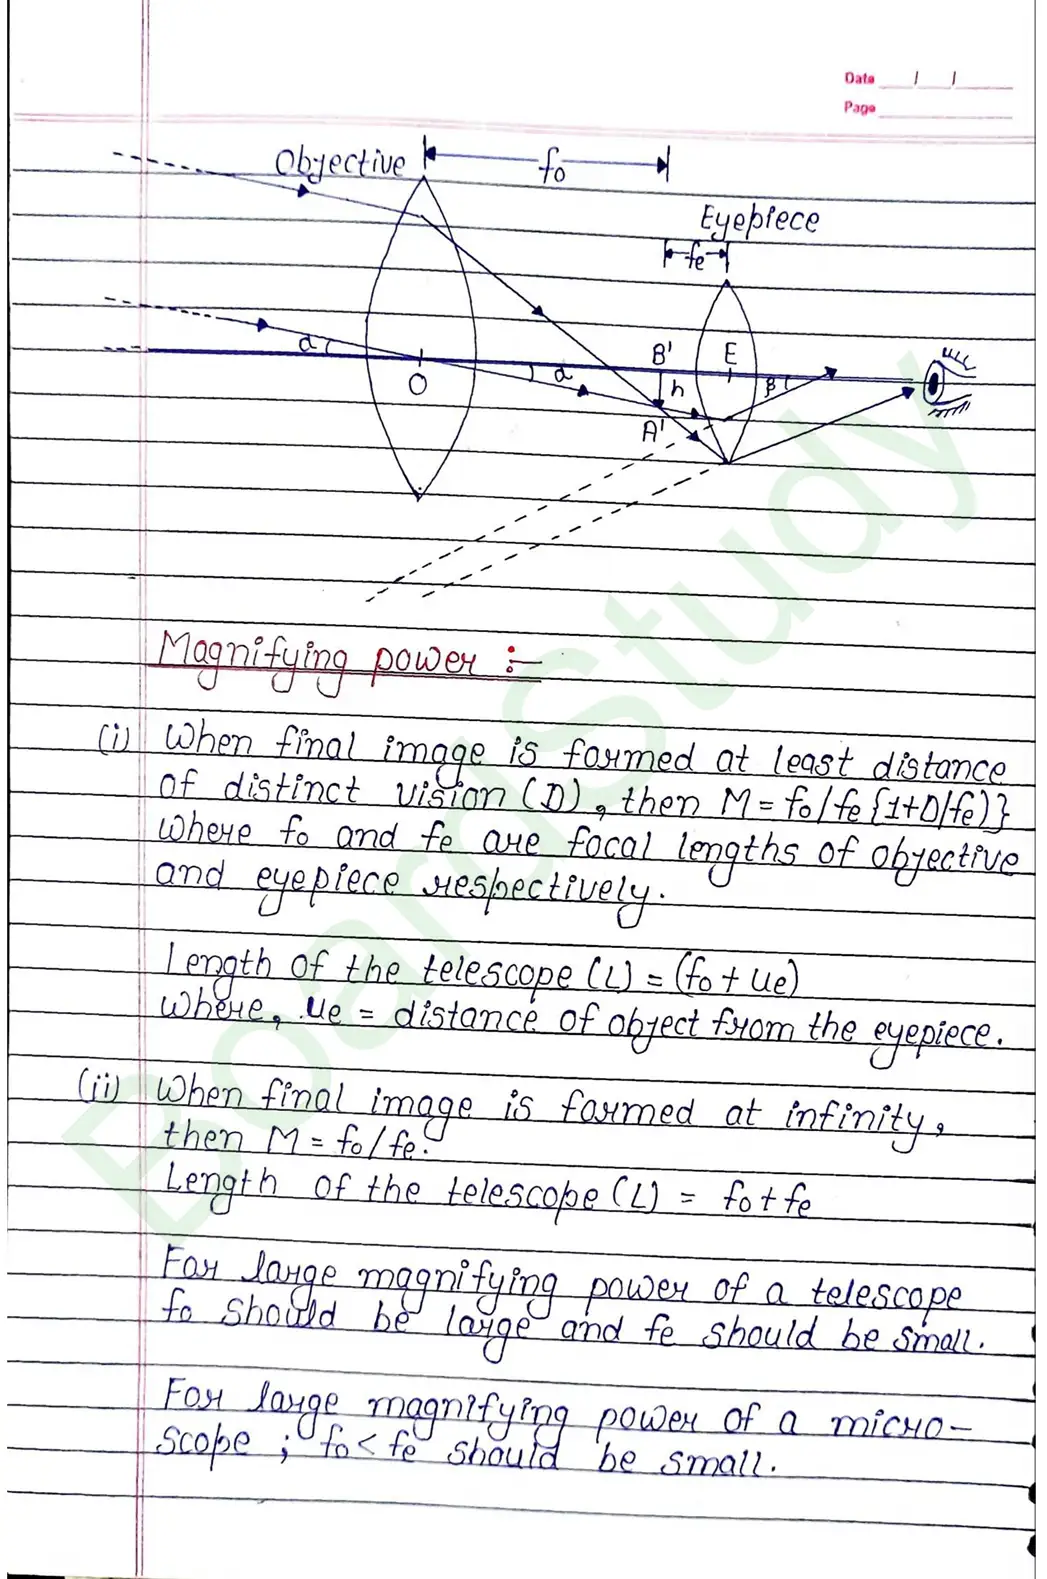 Date / /
Page
Objective
fo
Eyepiece
fe
α
O
α
B'
h
A'
E
β
Magnifying power :-
(i) When final image is formed at least distance
of distinct vision (D), then M = fo/fe {1+D/fe)}
where fo and fe are focal lengths of objective
and eyepiece respectively.
Length of the telescope (L) = (fo + ue)
where, ue = distance of object from the eyepiece.
(ii) When final image is formed at infinity,
then M = fo/fe.
Length of the telescope (L) = fo + fe
For large magnifying power of a telescope
fo should be large and fe should be small.
For large magnifying power of a micro-
scope ; fo < fe should be small.
BoardStudy